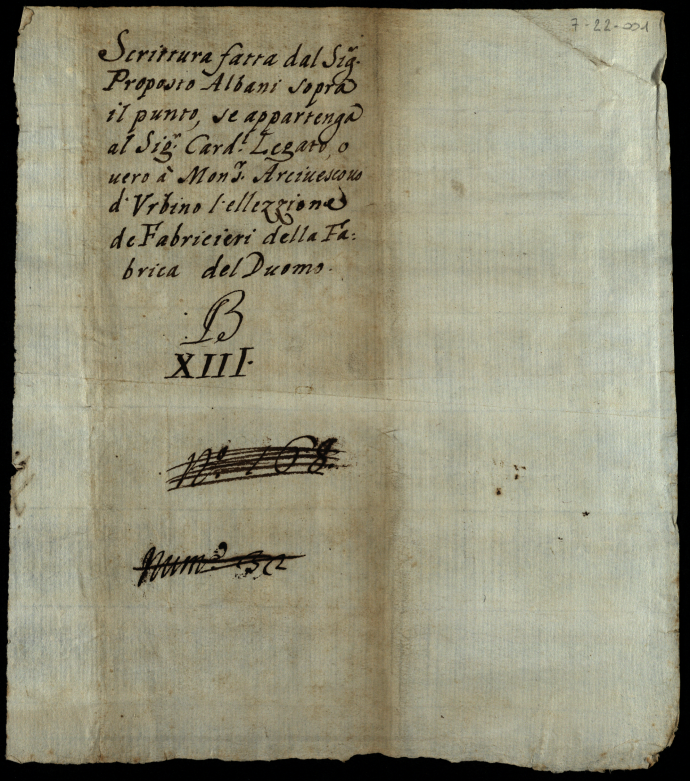 7-22-001
Scrittura fatta dal Sig.r
Proposto Albani sopra
il punto, se appartenga
al Sig.r Card.l Legato, o
uero à Mons.r Arciuescouo
d'Vrbino l'ellezzione
de Fabricieri della Fa:
brica del Duomo.
B
XIII.
N.o 168.
Num.o 32